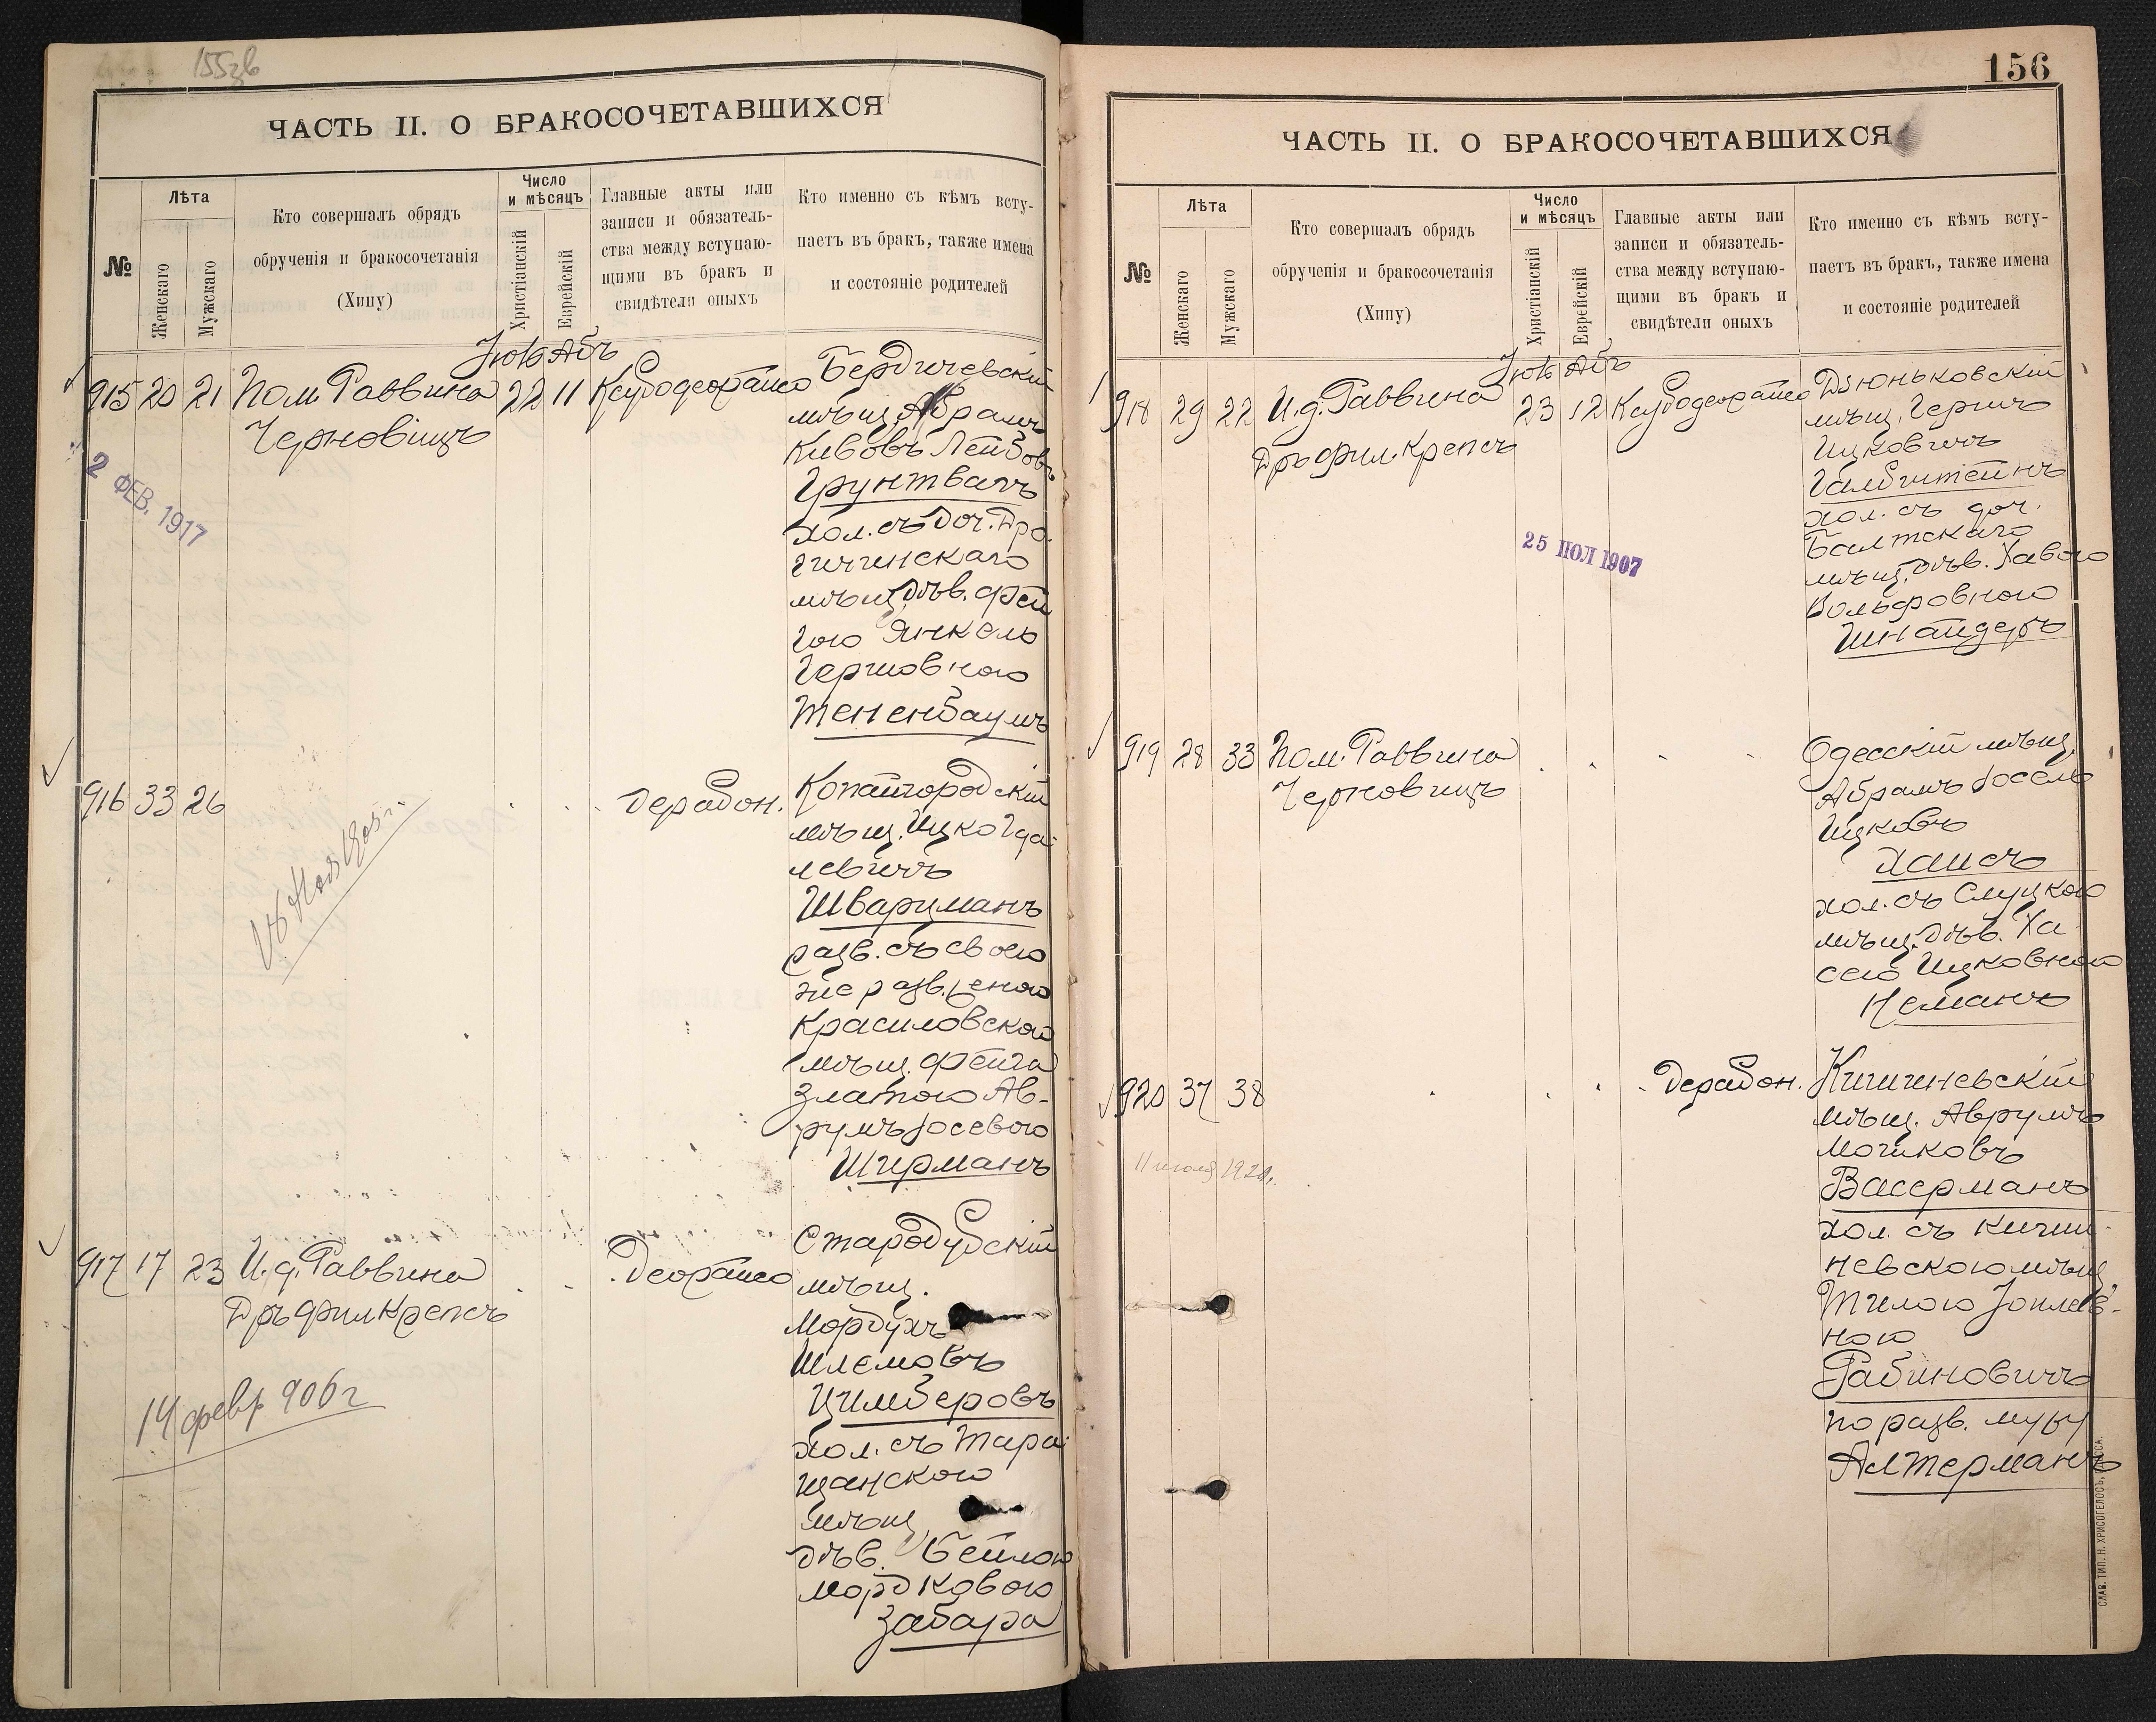 155зв
ЧАСТЬ II. О БРАКОСОЧЕТАВШИХСЯ
№
Лѣта
Женскаго
Мужскаго
Кто совершалъ обрядъ
обрученія и бракосочетанія
(Хипу)
Число
и мѣсяцъ
Христіанскій
Еврейскій
Главные акты или
записи и обязатель-
ства между вступаю-
щими въ бракъ и
свидѣтели оныхъ
Кто именно съ кѣмъ всту-
паетъ въ бракъ, также имена
и состояніе родителей
Іюль Абъ
915 20 21 Пом. Раввина 22 11
Черновицъ
2 ФЕВ. 1917
Бердичевскій
мѣщ. Абрамъ
Кивовъ Лейбовъ
Грунтвагъ
хол. съ доч. Дро-
гичинскаго
мѣщ. дѣв. Фей
гою Янкель
Гершовною
Тененбаумъ
916 33 26
Копайгородскій
мѣщ. Ицко Гда-
левичъ
Шварцманъ
разв. съ своею
же развеною
Красиловскою
мѣщ. Фейга
Златою Ав-
румъ Іосевою
Ширманъ
917 17 23 И. д. Раввина
Дръ Фил Крепсъ
14 февр 906 г
Стародубскій
мѣщ.
Мордухъ
Шлемовъ
Цимберовъ
хол. съ Тара-
щанскою
мѣщ.
дѣв. Бейлою
Мордковою
Забара
156
ЧАСТЬ II. О БРАКОСОЧЕТАВШИХСЯ
№
Лѣта
Женскаго
Мужскаго
Кто совершалъ обрядъ
обрученія и бракосочетанія
(Хипу)
Число
и мѣсяцъ
Христіанскій
Еврейскій
Главные акты или
записи и обязатель-
ства между вступаю-
щими въ бракъ и
свидѣтели оныхъ
Кто именно съ кѣмъ всту-
паетъ въ бракъ, также имена
и состояніе родителей
Іюль Абъ
918 29 22 И. д. Раввина 23 12
Дръ Фил. Крепсъ
25 ІЮЛ 1907
Дзюньковскій
мѣщ. Герши
Ицковичъ
Галбштейнъ
хол. съ доч.
Балтскаго
мѣщ. дѣв. Хавою
Вольфовною
Шнайдеръ
919 28 33 Пом. Раввина
Черновицъ
Одесскій мѣщ.
Абрамъ Іосель
Ицковъ
Хаисъ
хол. съ Слуцкою
мѣщ. дѣв. Ха-
сею Ицковною
Неманъ
920 37 38
Кишиневскій
мѣщ. Аврумъ
Мошковъ
Васерманъ
хол. съ Киши-
невскою мѣщ.
ною
Рабиновичъ
по разв. мужу
Алтерманъ
СЛАВ. ТИП. Н. ХРИСОГЕЛОСЪ, ОДЕССА.